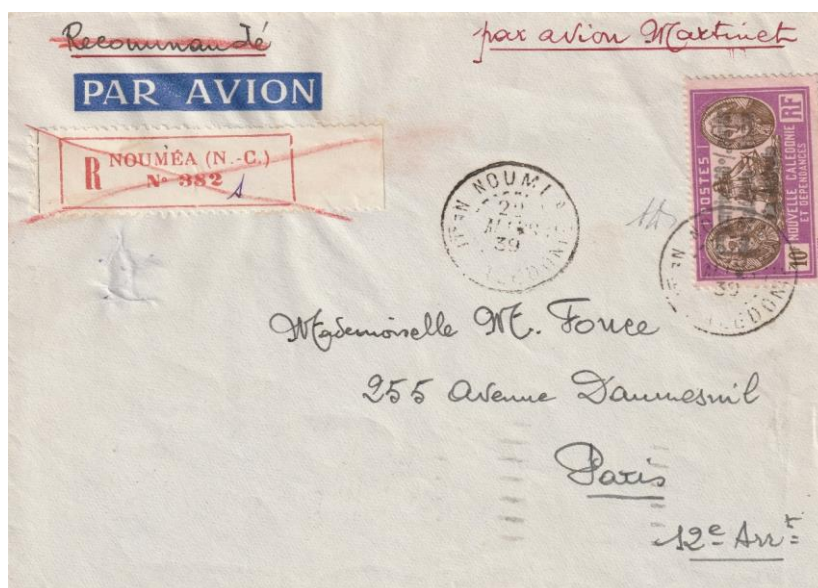 Recommandé
par avion Martinet
PAR AVION
R NOUMÉA (N.-C.)
N° 382
NOUMÉA
39
POSTES
RF
NOUVELLE CALÉDONIE
ET DÉPENDANCES
10F
39
Mademoiselle M. Fonce
255 Avenue Daumesnil
Paris
12e Arrt